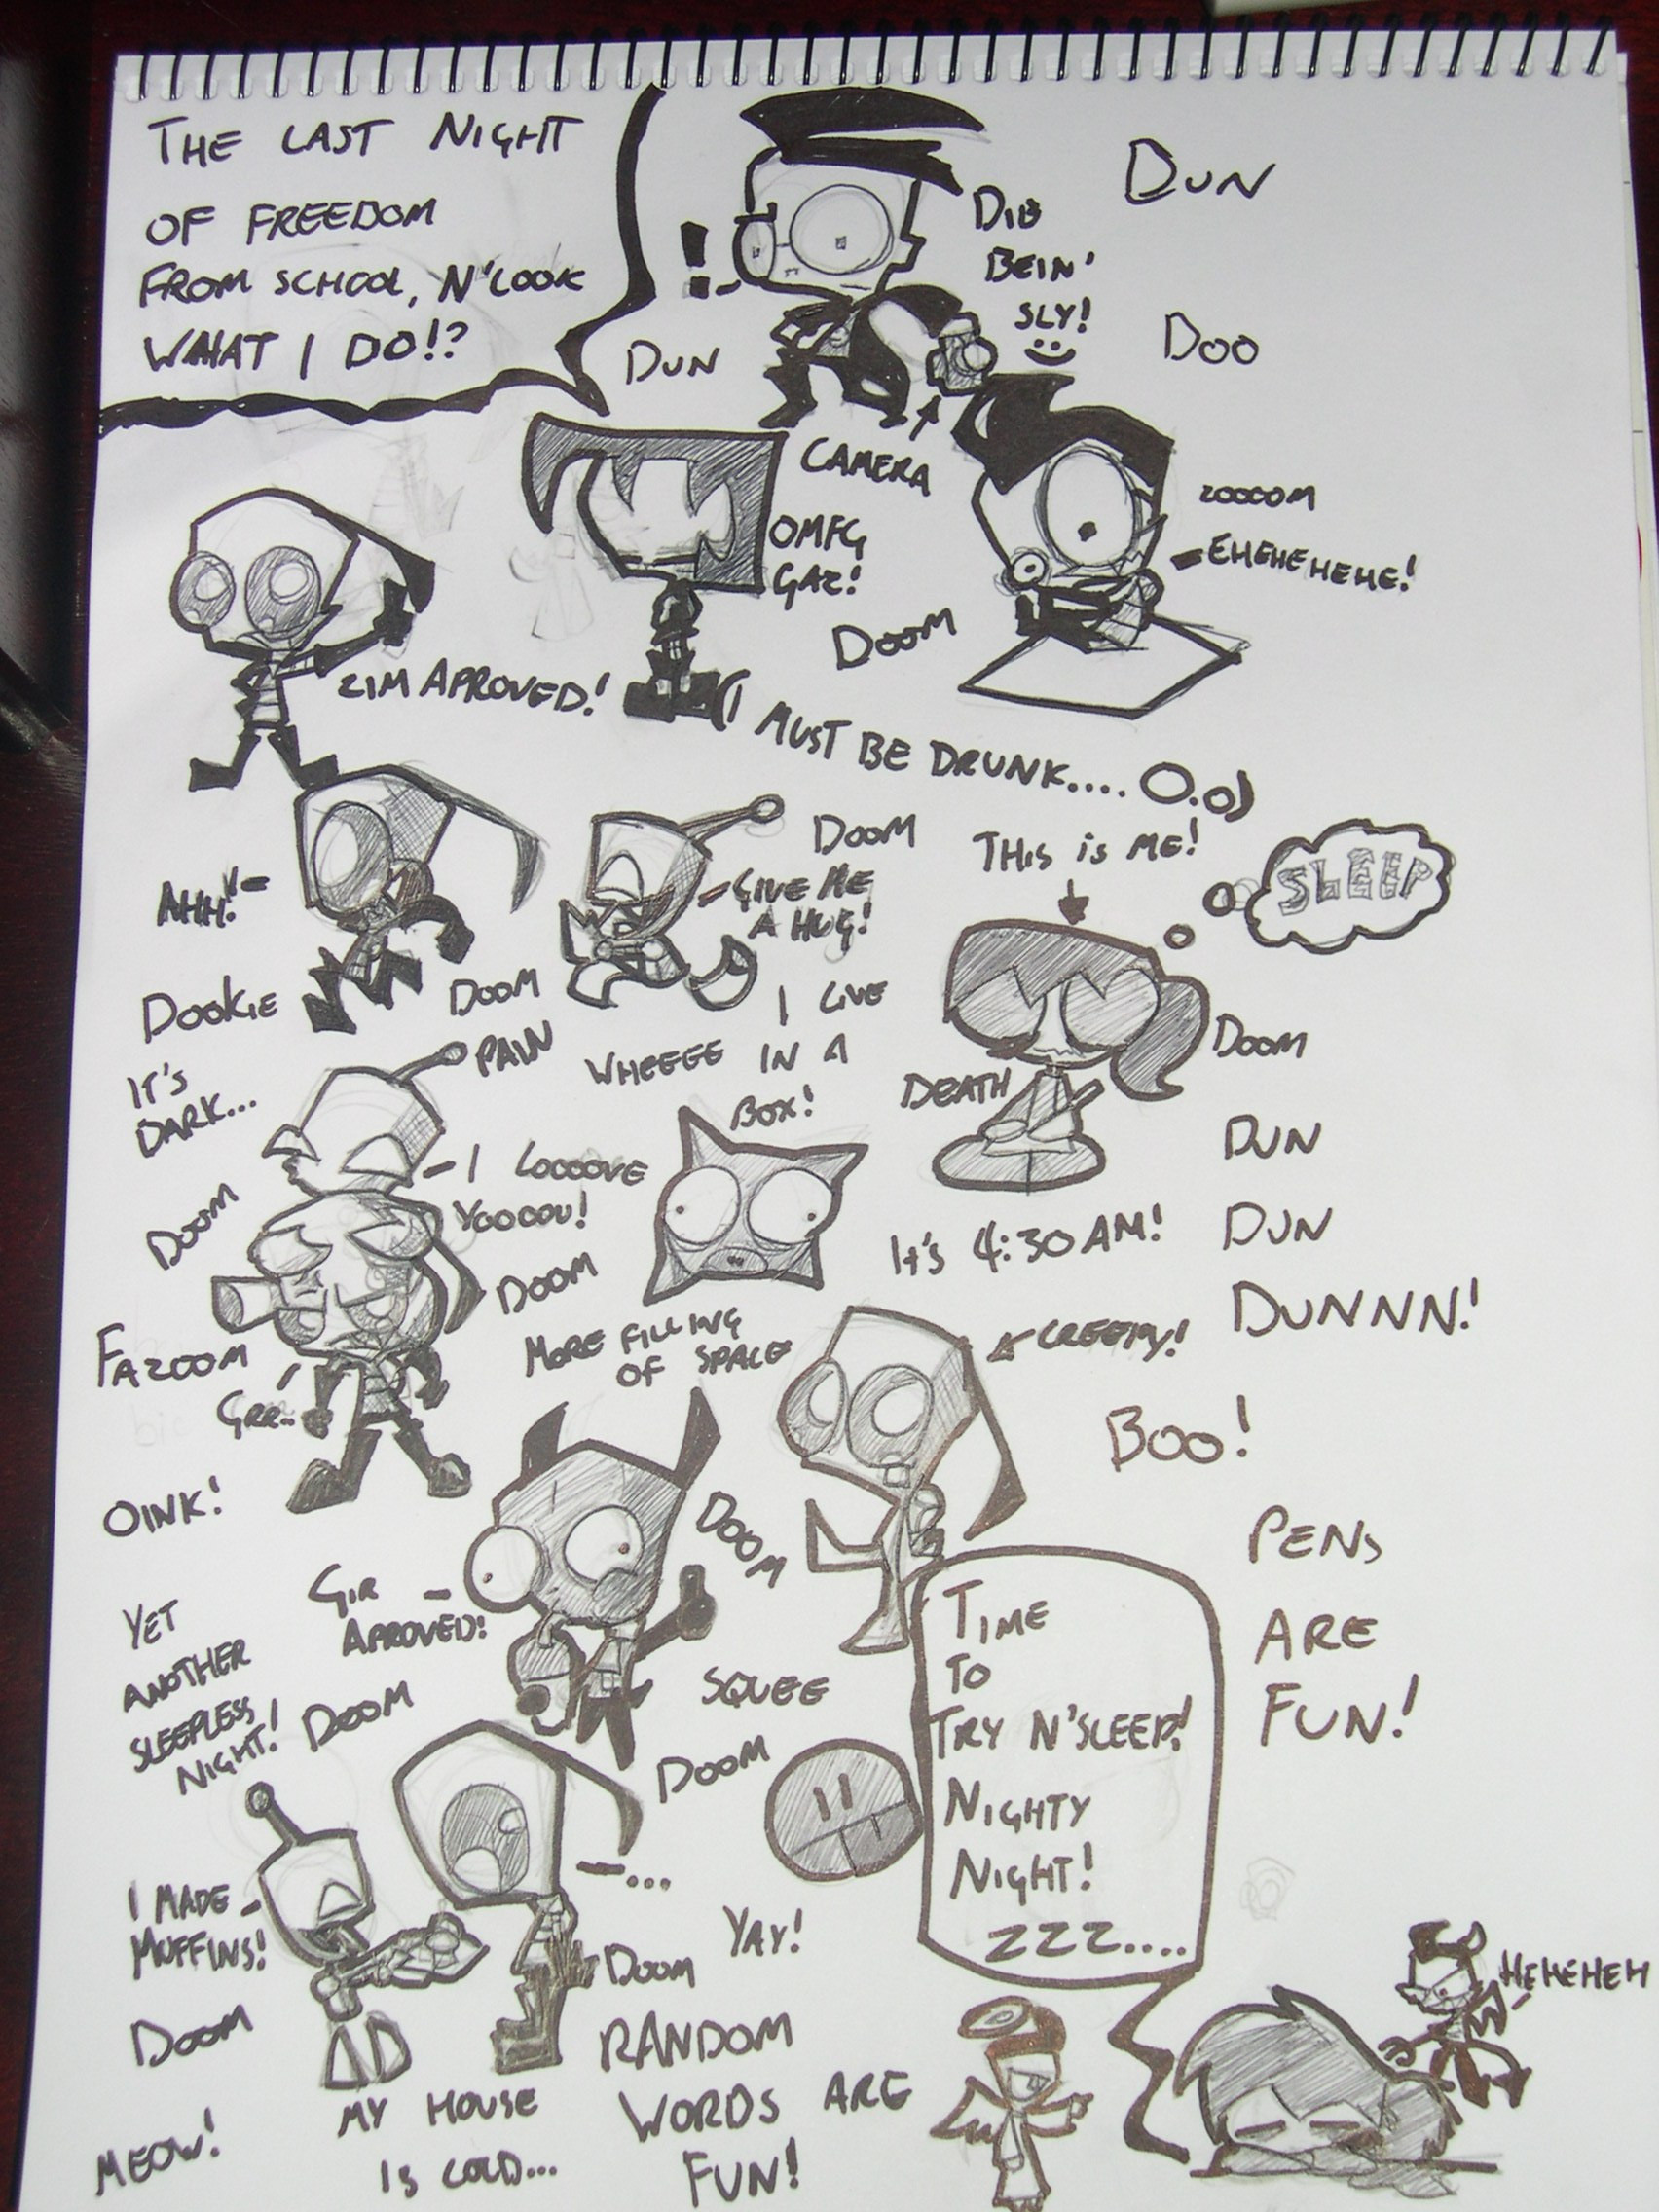 THE LAST NIGHT
OF FREEDOM
FROM SCHOOL, N'LOOK
WHAT I DO!?
!
DUN
DIB
BEIN'
SLY!
DUN
DOO
CAMERA
OMFG
GAZ!
ZOOOOM
EHEHEHEHE!
DOOM
ZIM APROVED!
(I MUST BE DRUNK.... O.o)
AHH!
DOOM
GIVE ME
A HUG!
THIS IS ME!
SLEEP
DOOKIE
DOOM
PAIN
WHEEEE
I LIVE
IN A
BOX!
DEATH
DOOM
IT'S
DARK...
DOOM
I LOOOOVE
YOOOOU!
DOOM
IT'S 4:30 AM!
DUN
DUN
DUNNN!
FAZOOM
GRR..
MORE FILLING
OF SPACE
CREEPY!
BOO!
OINK!
DOOM
GIR
APROVED!
PENS
ARE
FUN!
YET
ANOTHER
SLEEPLESS
NIGHT!
DOOM
SQUEE
DOOM
TIME
TO
TRY N'SLEEP!
NIGHTY
NIGHT!
ZZZ....
I MADE
MUFFINS!
...
DOOM
YAY!
DOOM
HEHEHEH
MEOW!
MY HOUSE
IS COLD...
RANDOM
WORDS ARE
FUN!